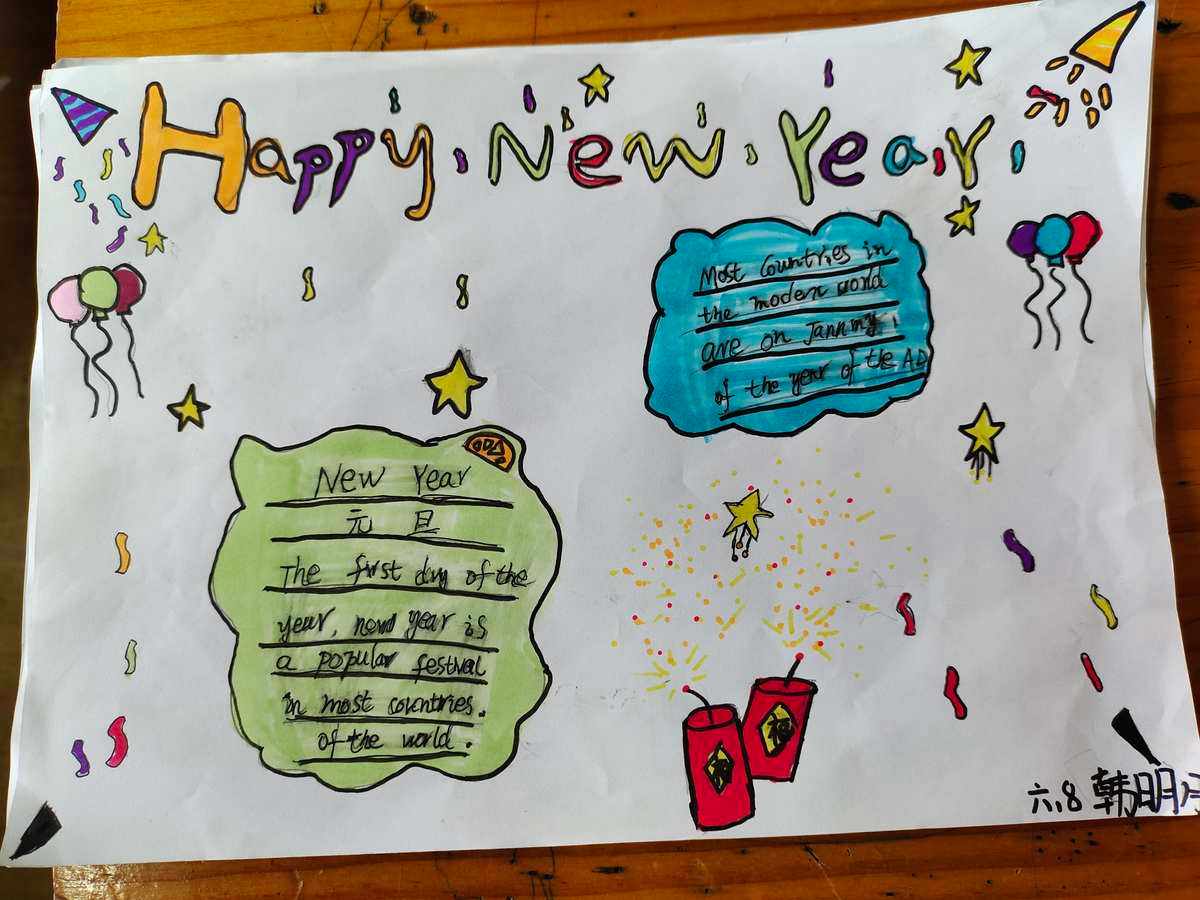 Happy New Year
Most Countries in
the modern world
are on Janrmy 1
of the year of the AD
New Year
元旦
The first day of the
year, new year is
a popular festival
in most countries.
of the world.
福
福
六.8 韩明月